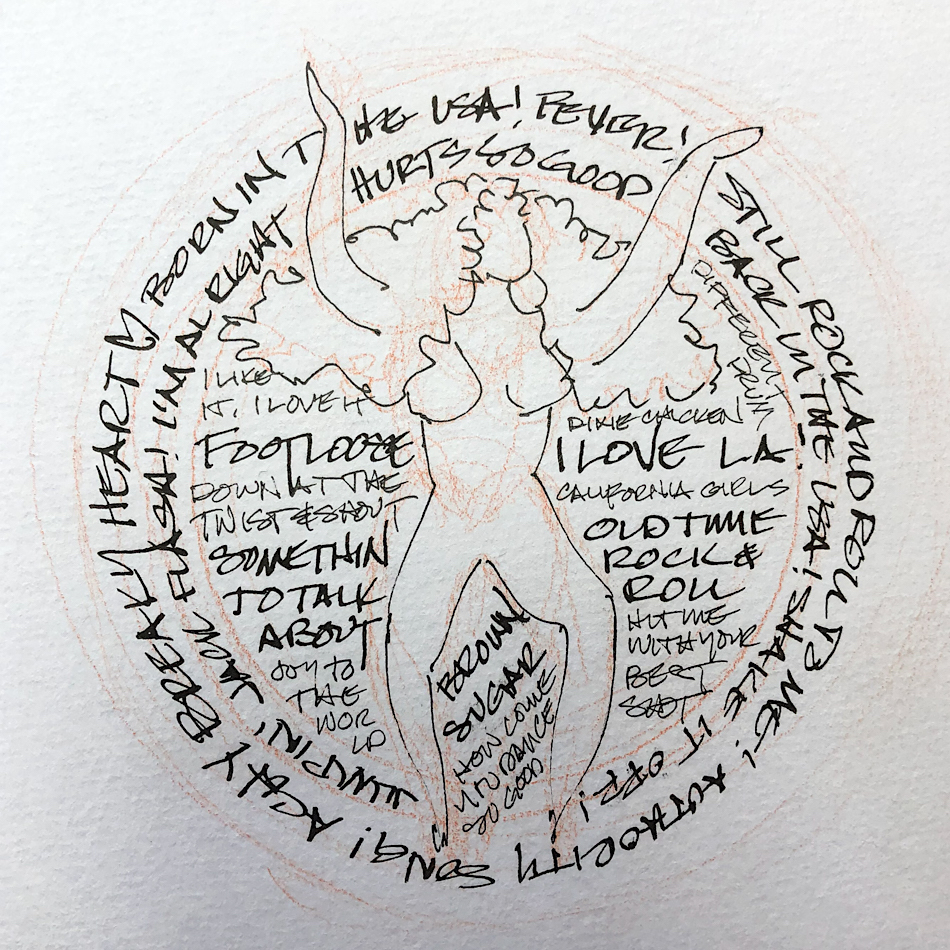 BORN IN THE USA! FEVER!
STILL ROCK AND ROLL TO ME!
AUTHORITY SONG!
ACHY BREAKY HEART
I'M ALRIGHT
HURTS SO GOOD
BACK IN THE USA!
SHAKE IT OFF!
JUMPIN' JACK FLASH!
I LIKE
IT, I LOVE IT
FOOTLOOSE
DOWN AT THE
TWIST & SHOUT
SOMETHIN
TO TALK
ABOUT
JOY TO
THE
WOR
LD
DIFFERENT
DRUM
DIXIE CHICKEN
I LOVE L.A.
CALIFORNIA GIRLS
OLD TIME
ROCK &
ROLL
HIT ME
WITH YOUR
BEST
SHOT
BROWN
SUGAR
HOW COME
YOU DANCE
SO GOOD